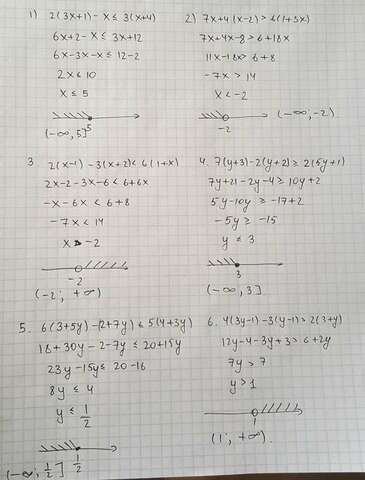 1) 2(3x+1) - x ≤ 3(x+4)
6x+2 - x ≤ 3x+12
6x-3x-x ≤ 12-2
2x ≤ 10
x ≤ 5
5
(-∞, 5]
2) 7x+4(x-2) > 6(1+3x)
7x+4x-8 > 6+18x
11x-18x > 6+8
-7x > 14
x < -2
-2
(-∞; -2)
3. 2(x-1) - 3(x+2) < 6(1+x)
2x-2-3x-6 < 6+6x
-x-6x < 6+8
-7x < 14
x > -2
-2
(-2; +∞)
4. 7(y+3)-2(y+2) ≥ 2(5y+1)
7y+21-2y-4 ≥ 10y+2
5y-10y ≥ -17+2
-5y ≥ -15
y ≤ 3
3
(-∞, 3]
5. 6(3+5y)-(2+7y) ≤ 5(4+3y)
18+30y-2-7y ≤ 20+15y
23y-15y ≤ 20-16
8y ≤ 4
y ≤ 1/2
1/2
(-∞; 1/2]
6. 4(3y-1)-3(y-1) > 2(3+y)
12y-4-3y+3 > 6+2y
7y > 7
y > 1
1
(1; +∞).